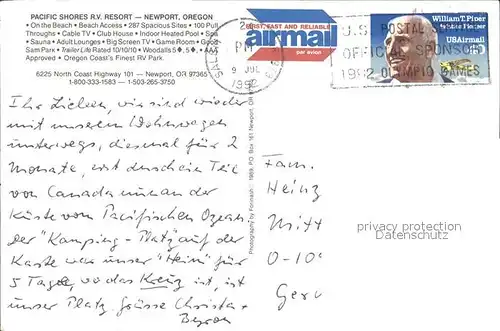 PACIFIC SHORES R.V. RESORT — NEWPORT, OREGON
• On the Beach • Beach Access • 287 Spacious Sites • 100 Pull
Throughs • Cable TV • Club House • Indoor Heated Pool • Spa
• Sauna • Adult Lounges • Big Screen TV • Game Room • Good
Sam Park • Trailer Life Rated 10/10/9 • Woodalls 5 • 5 • AAA
Approved • Oregon Coast's Finest RV Park
6225 North Coast Highway 101 — Newport, OR 97365
1-800-333-1583 — 1-503-265-3750
Ihr Lieben, wir sind wieder
mit unserem Wohnwagen
unterwegs, diesmal für 2
Monate, erst durch ein Teil
von Canada nun an der
Küste vom Pacifischen Ozean.
Der "Kamping-Platz" auf der
Karte war unser "Heim" für
5 Tage, wo das Kreuz ist, ist
unser Platz. Grüsse Christa +
Byron
FIRST, FAST AND RELIABLE
airmail
par avion
PM
9 JUL
1992
U.S. POSTAL
OFFICIAL SPONSOR
1992 OLYMPIC GAMES
William T. Piper
Aviation Pioneer
USAirmail
40
Fam.
Heinz
Mitt
O-10
Ger
privacy protection
Datenschutz